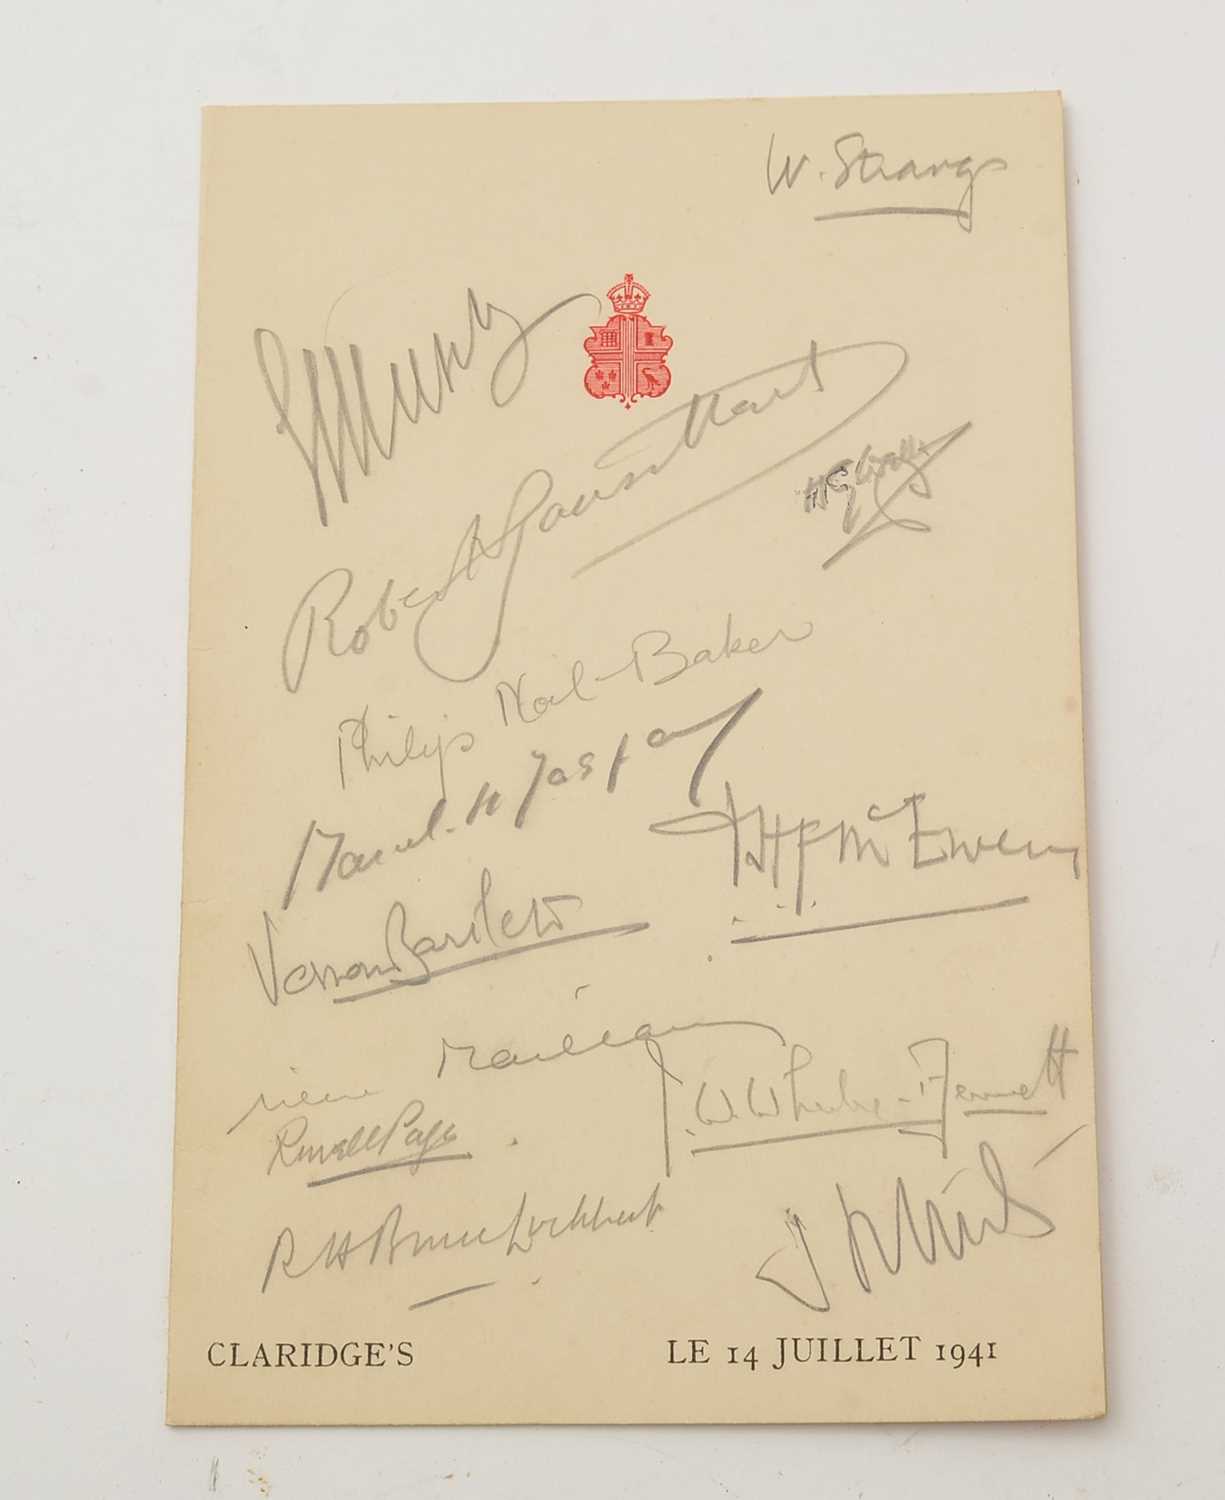 W. Strang
Robert Vansittart
H G Wells
Philip Noel-Baker
Marcel-H Jaspar
JHF McEwen
Vernon Bartlett
Pierre Maillaud
J. W. Wheeler-Bennett
Russell Page
R H Bruce Lockhart
CLARIDGE'S
LE 14 JUILLET 1941